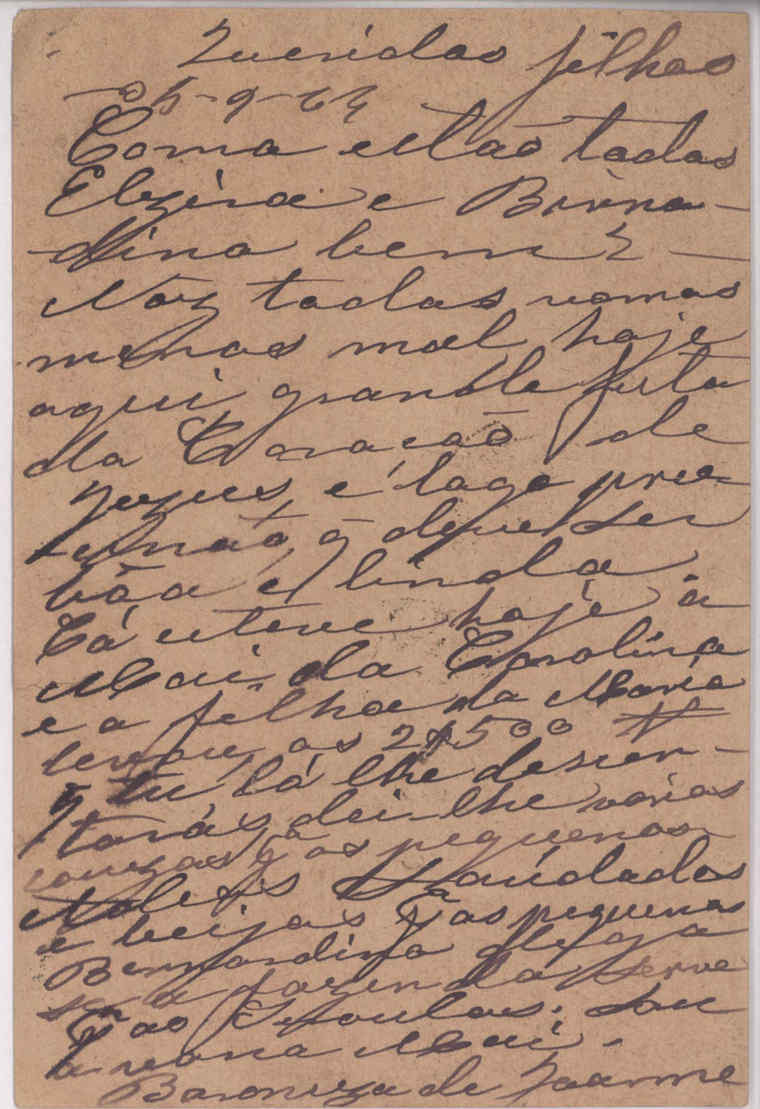 Queridas filhas
5-9-
Como estão todas
Elzira e Berna-
dina bem?
Nos todas vamos
menos mal hoje
aqui grande festa
do Coração de
Jezus, e logo
deve ser
bôa e linda
Cá esteve hoje a
Mai da Carolina
e a filha da Maria
levou as 2$500
tu lá lhe descon-
tarás dei-lhe varias
couzas os pequenos
Saúdades
e beijos as pequenas
Bernardina
a fazenda serve
ao
a vona Mai.
Baroneza de